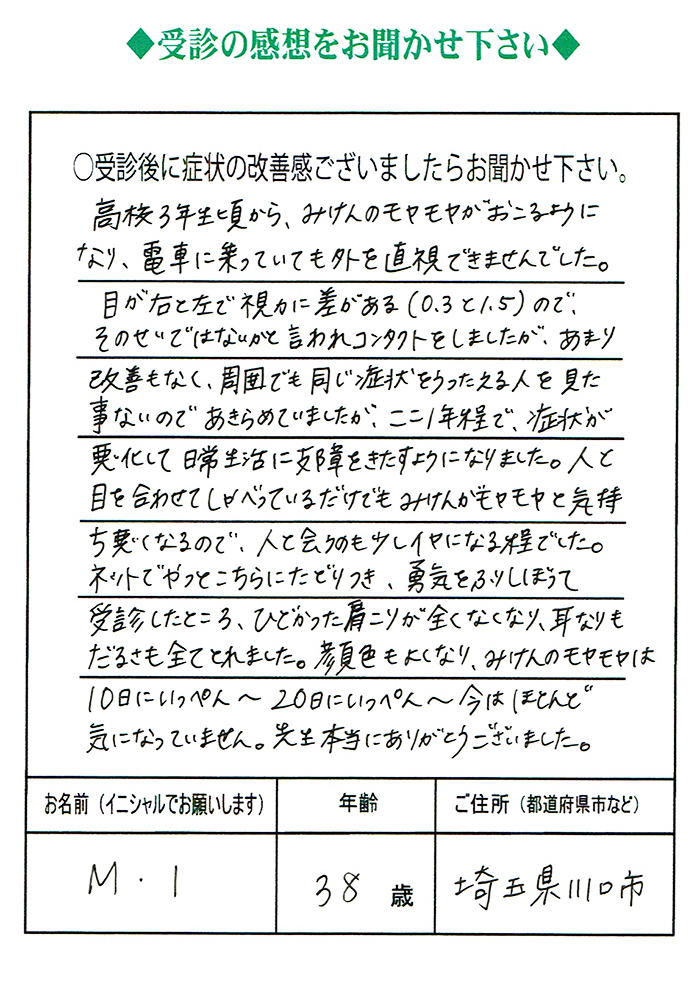 ◆受診の感想をお聞かせ下さい◆
○受診後に症状の改善感ございましたらお聞かせ下さい。
高校3年生頃から、みけんのモヤモヤがおこるように
なり、電車に乗っていても外を直視できませんでした。
目が右と左で視力に差がある(0.3と1.5)ので、
そのせいではないかと言われコンタクトをしましたが、あまり
改善もなく、周囲でも同じ症状をうったえる人を見た
事ないのであきらめていましたが、ここ1年程で、症状が
悪化して日常生活に支障をきたすようになりました。人と
目を合わせてしゃべっているだけでもみけんがモヤモヤと気持
ち悪くなるので、人と会うのも少しイヤになる程でした。
ネットでやっとこちらにたどりつき、勇気をふりしぼって
受診したところ、ひどかった肩こりが全くなくなり、耳なりも
だるさも全てとれました。顔色もよくなり、みけんのモヤモヤは
10日にいっぺん～20日にいっぺん～今はほとんど
気になっていません。先生本当にありがとうございました。
お名前（イニシャルでお願いします） 年齢 ご住所（都道府県市など）
M・I 38歳 埼玉県川口市